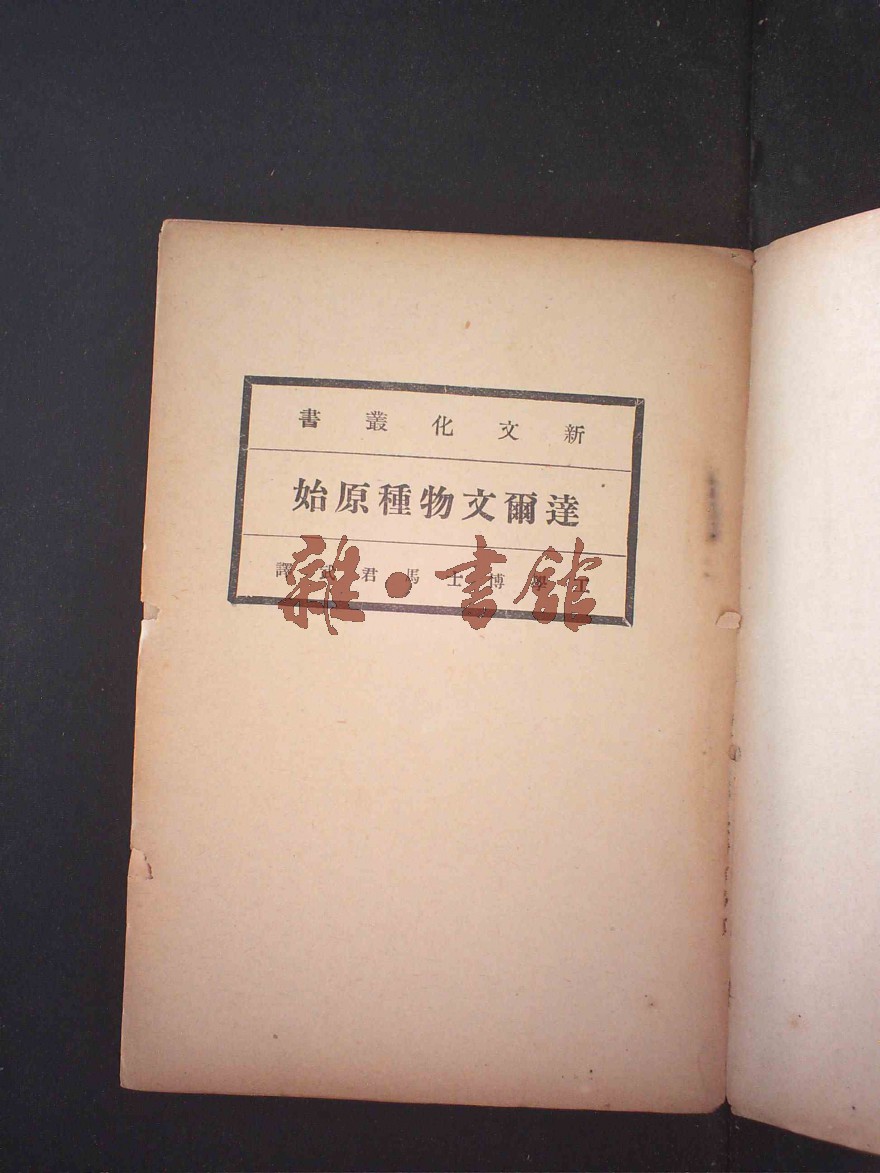 新文化叢書
達爾文物種原始
工學博士馬君武譯
雜·書館